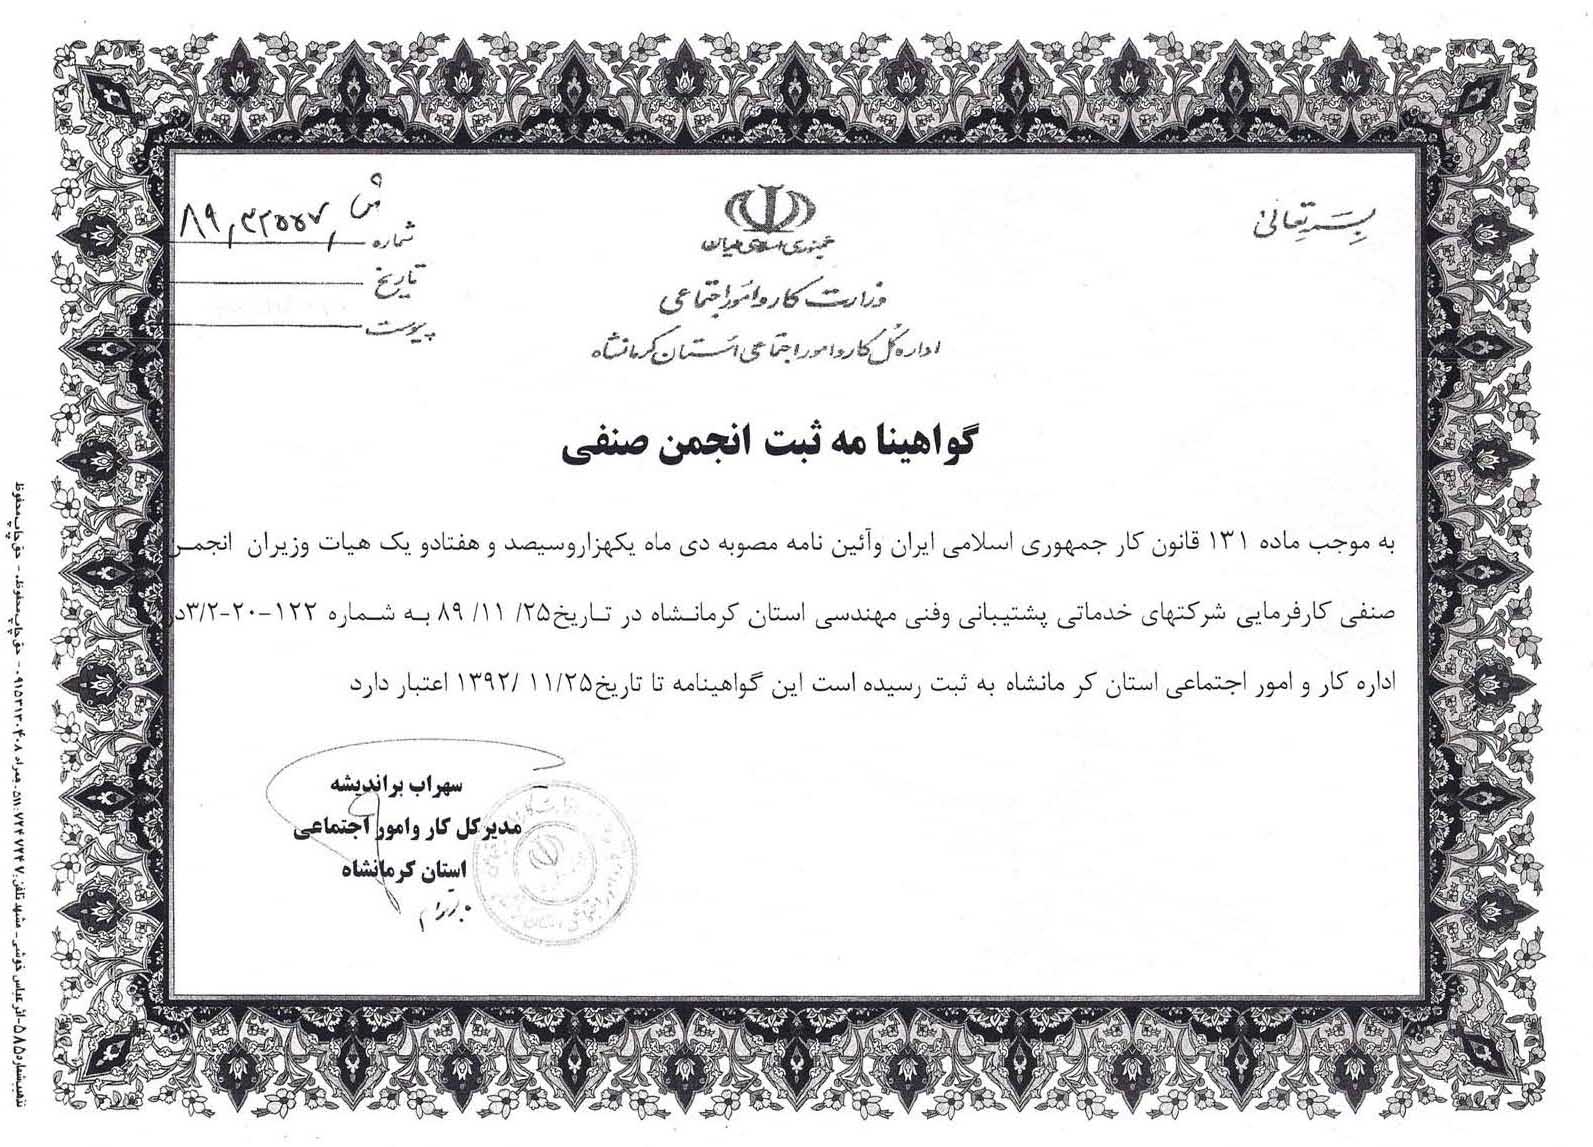 بسمه تعالی
جمهوری اسلامی ایران
وزارت کار و امور اجتماعی
اداره کل کار و امور اجتماعی استان کرمانشاه
شماره
تاریخ
پیوست
گواهینا مه ثبت انجمن صنفی
به موجب ماده ۱۳۱ قانون کار جمهوری اسلامی ایران وآئین نامه مصوبه دی ماه یکهزاروسیصد و هفتادو یک هیات وزیران انجمن
صنفی کارفرمایی شرکتهای خدماتی پشتیبانی وفنی مهندسی استان کرمانشاه در تاریخ۲۵/ ۱۱/ ۸۹ به شماره ۱۲۲-۲۰-۳/۲در
اداره کار و امور اجتماعی استان کر مانشاه به ثبت رسیده است این گواهینامه تا تاریخ۱۱/۲۵ /۱۳۹۲ اعتبار دارد
سهراب براندیشه
مدیرکل کار وامور اجتماعی
استان کرمانشاه